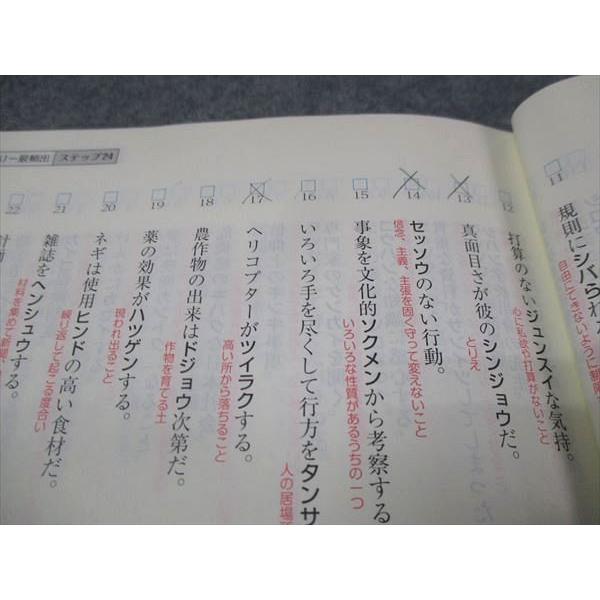 ー最頻出 ステップ24
11
規則にシバられ
自由にできないように制限
12
打算のないジュンスイな気持。
心に私欲や打算がないこと
13
真面目さが彼のシンジョウだ。
とりえ
14
セッソウのない行動。
信念、主義、主張を固く守って変えないこと
15
事象を文化的ソクメンから考察する
いろいろな性質があるうちの一つ
16
いろいろ手を尽くして行方をタンサ
人の居場
17
ヘリコプターがツイラクする。
高い所から落ちること
18
農作物の出来はドジョウ次第だ。
作物を育てる土
19
薬の効果がハツゲンする。
現われ出ること
20
ネギは使用ヒンドの高い食材だ。
繰り返して起こる度合い
21
雑誌をヘンシュウする。
材料を集めて新聞
22
計画